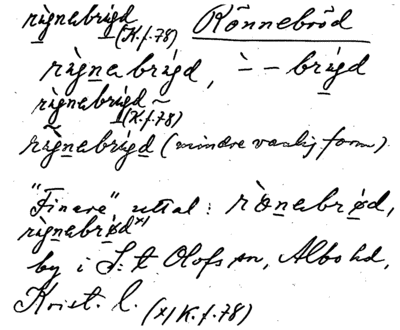 rìgnabrígd (K.f.78) Rönnebröd
rìgnabrígd, ` – – brígd
rìgnabrígd (K.f.78)
rìgnabrígd (mindre vanlig form)
"Finare" uttal: rònabrød,
rìgnabrød x)
by i S:t Olofs sn, Albo hd,
Krist. l. (x) K.f.78)